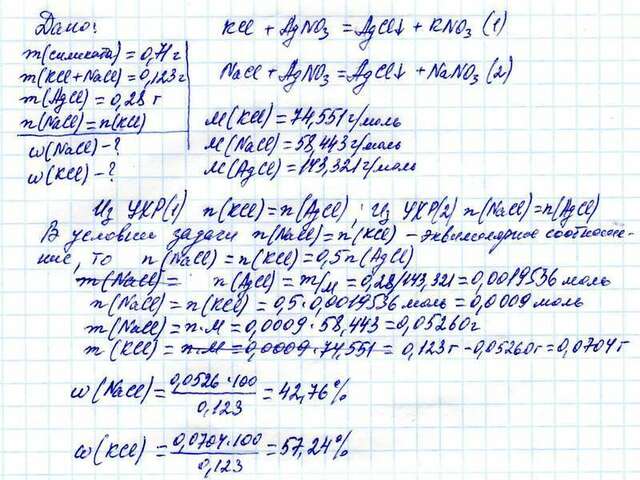 Дано:
m(силиката) = 0,71 г
m(KCl + NaCl) = 0,123 г
m(AgCl) = 0,28 г
n(NaCl) = n(KCl)
ω(NaCl) - ?
ω(KCl) - ?
KCl + AgNO₃ = AgCl↓ + KNO₃ (1)
NaCl + AgNO₃ = AgCl↓ + NaNO₃ (2)
M(KCl) = 74,551 г/моль
M(NaCl) = 58,443 г/моль
M(AgCl) = 143,321 г/моль
Из УХР(1) n(KCl) = n(AgCl); Из УХР(2) n(NaCl) = n(AgCl)
В условии задачи n(NaCl) = n(KCl) - эквимолярное соотноше-
ние, то n(NaCl) = n(KCl) = 0,5n(AgCl)
m(NaCl) = n(AgCl) = m/M = 0,28/143,321 = 0,0019536 моль
n(NaCl) = n(KCl) = 0,5·0,0019536 моль = 0,0009 моль
m(NaCl) = n·M = 0,0009·58,443 = 0,05260 г
m(KCl) = n·M = 0,0009·74,551 = 0,123 г - 0,05260 г = 0,0704 г
ω(NaCl) = 0,0526·100 / 0,123 = 42,76%
ω(KCl) = 0,0704·100 / 0,123 = 57,24%